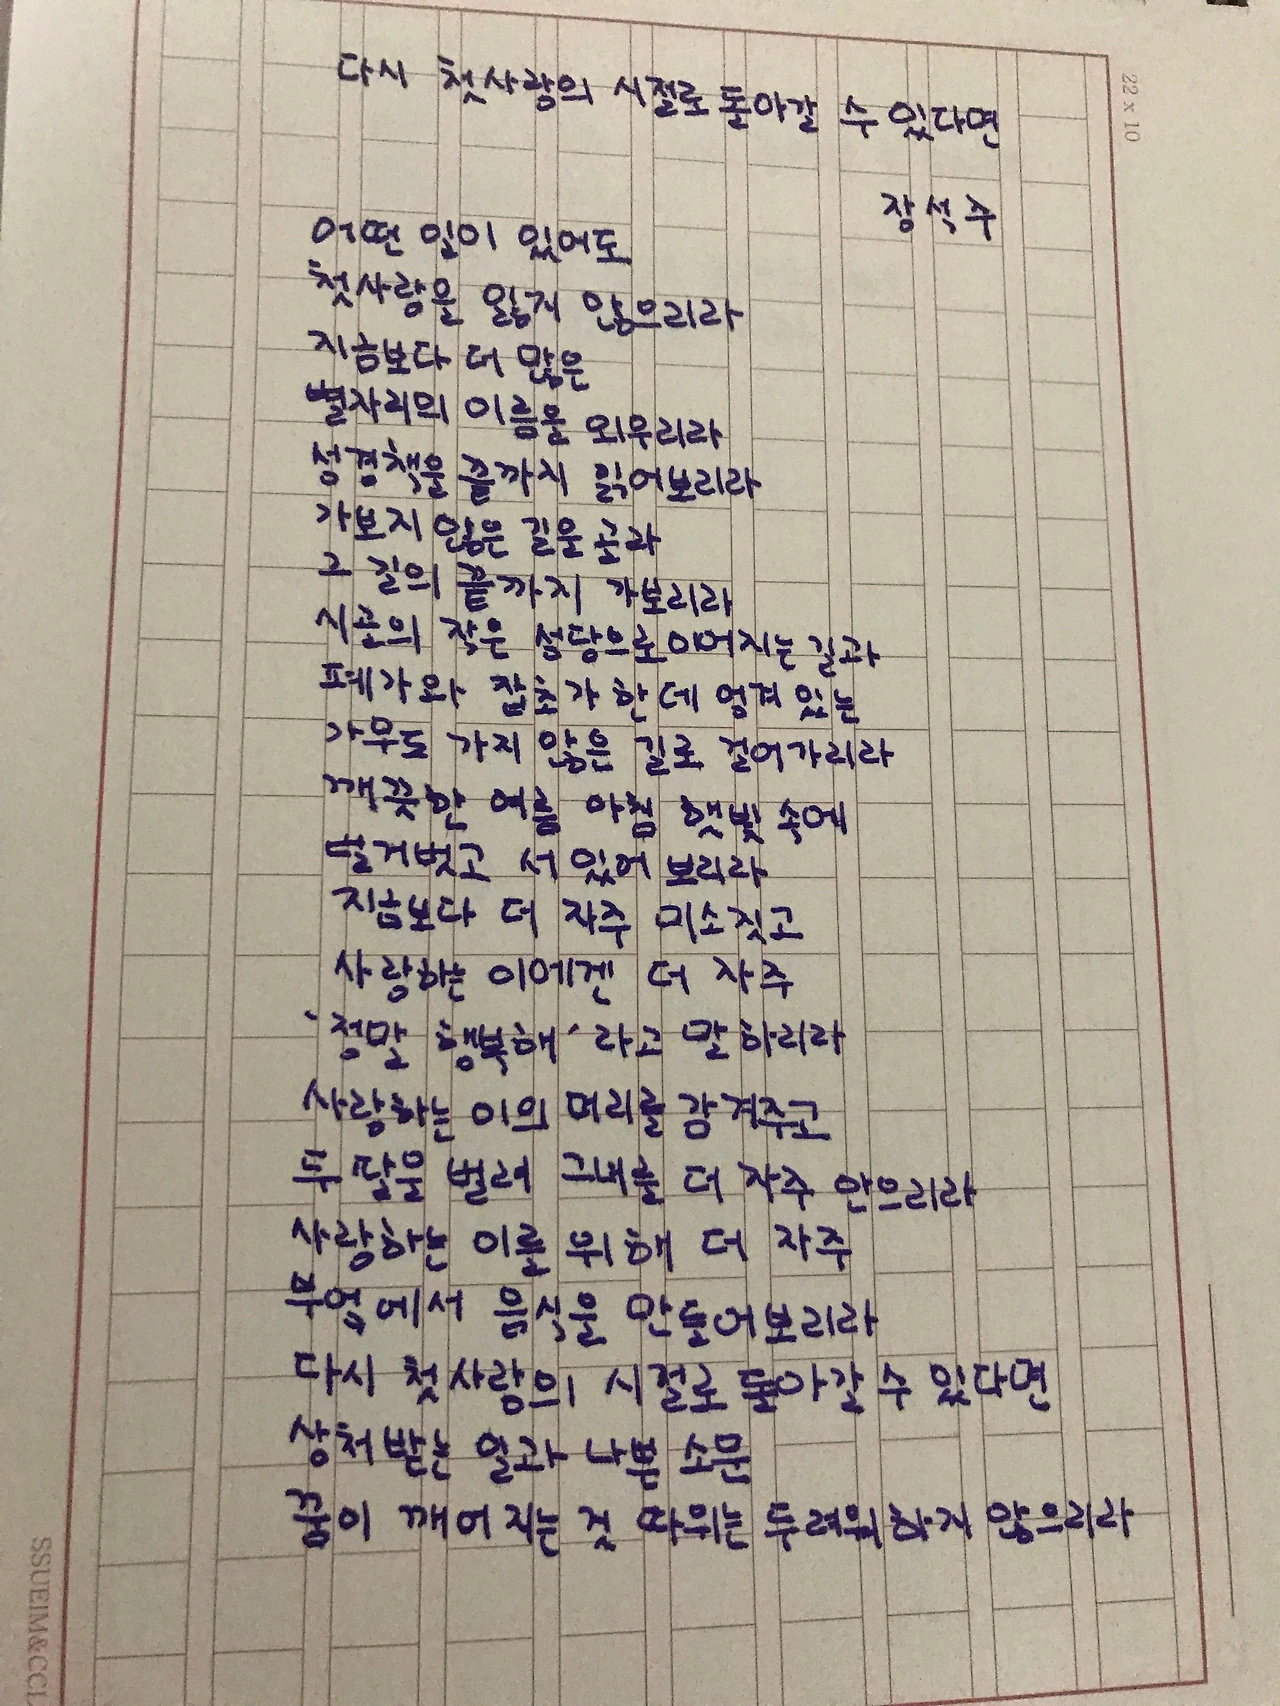 다시 첫사랑의 시절로 돌아갈 수 있다면
22 x 10
장석주
어떤 일이 있어도
첫사랑을 잃지 않으리라
지금보다 더 많은
별자리의 이름을 외우리라
성경책을 끝까지 읽어보리라
가보지 않은 길을 골라
그 길의 끝까지 가보리라
시골의 작은 성당으로 이어지는 길과
폐가와 잡초가 한데 엉겨 있는
아무도 가지 않은 길로 걸어가리라
깨끗한 여름 아침 햇빛 속에
벌거벗고 서 있어 보리라
지금보다 더 자주 미소짓고
사랑하는 이에겐 더 자주
'정말 행복해'라고 말하리라
사랑하는 이의 머리를 감겨주고
두 팔을 벌려 그녀를 더 자주 안으리라
사랑하는 이를 위해 더 자주
부엌에서 음식을 만들어보리라
다시 첫사랑의 시절로 돌아갈 수 있다면
상처받는 일과 나쁜 소문
꿈이 깨어지는 것 따위는 두려워하지 않으리라